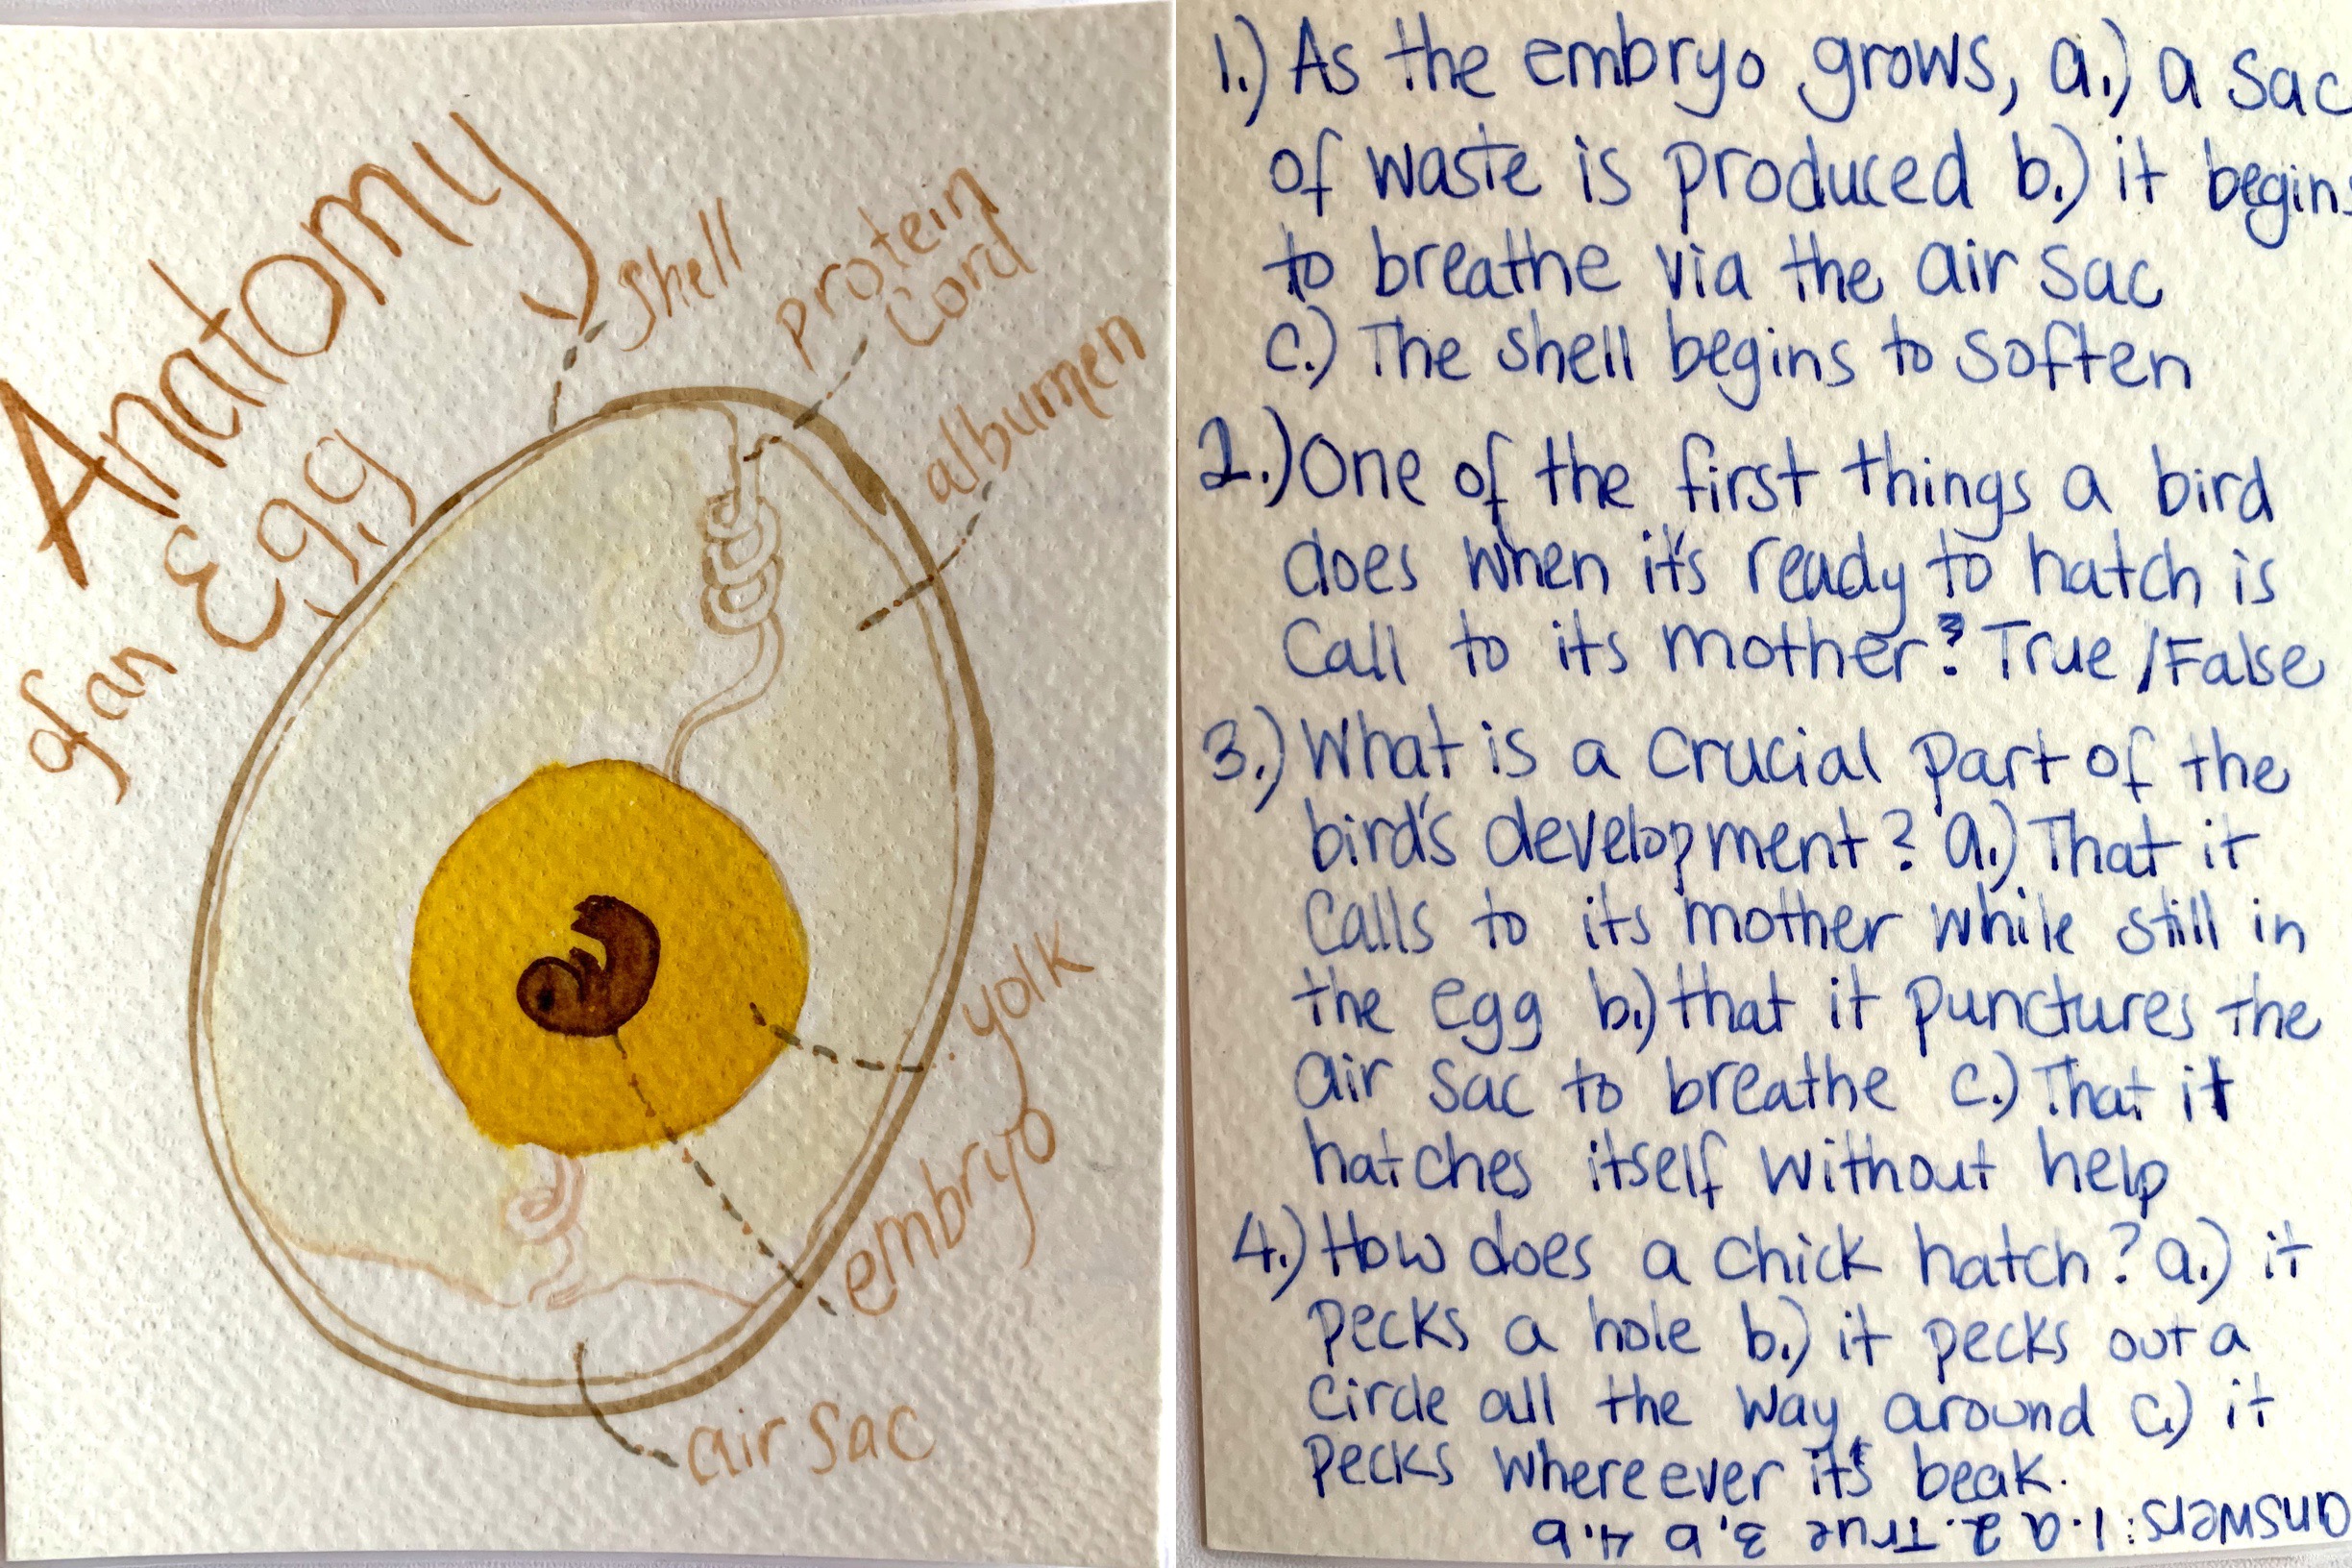 Anatomy
of an Egg
shell
protein
cord
albumen
yolk
embryo
air sac
1.) As the embryo grows, a.) a sac
of waste is produced b.) it begins
to breathe via the air sac
c.) The shell begins to soften
2.) One of the first things a bird
does when it's ready to hatch is
Call to its mother? True/False
3.) What is a crucial part of the
bird's development? a.) That it
Calls to its mother while still in
the egg b.) that it punctures the
air sac to breathe c.) That it
hatches itself without help
4.) How does a chick hatch? a.) it
pecks a hole b.) it pecks out a
circle all the way around c.) it
pecks whereever it's beak.
answers: 1. a 2. True 3. b 4. b